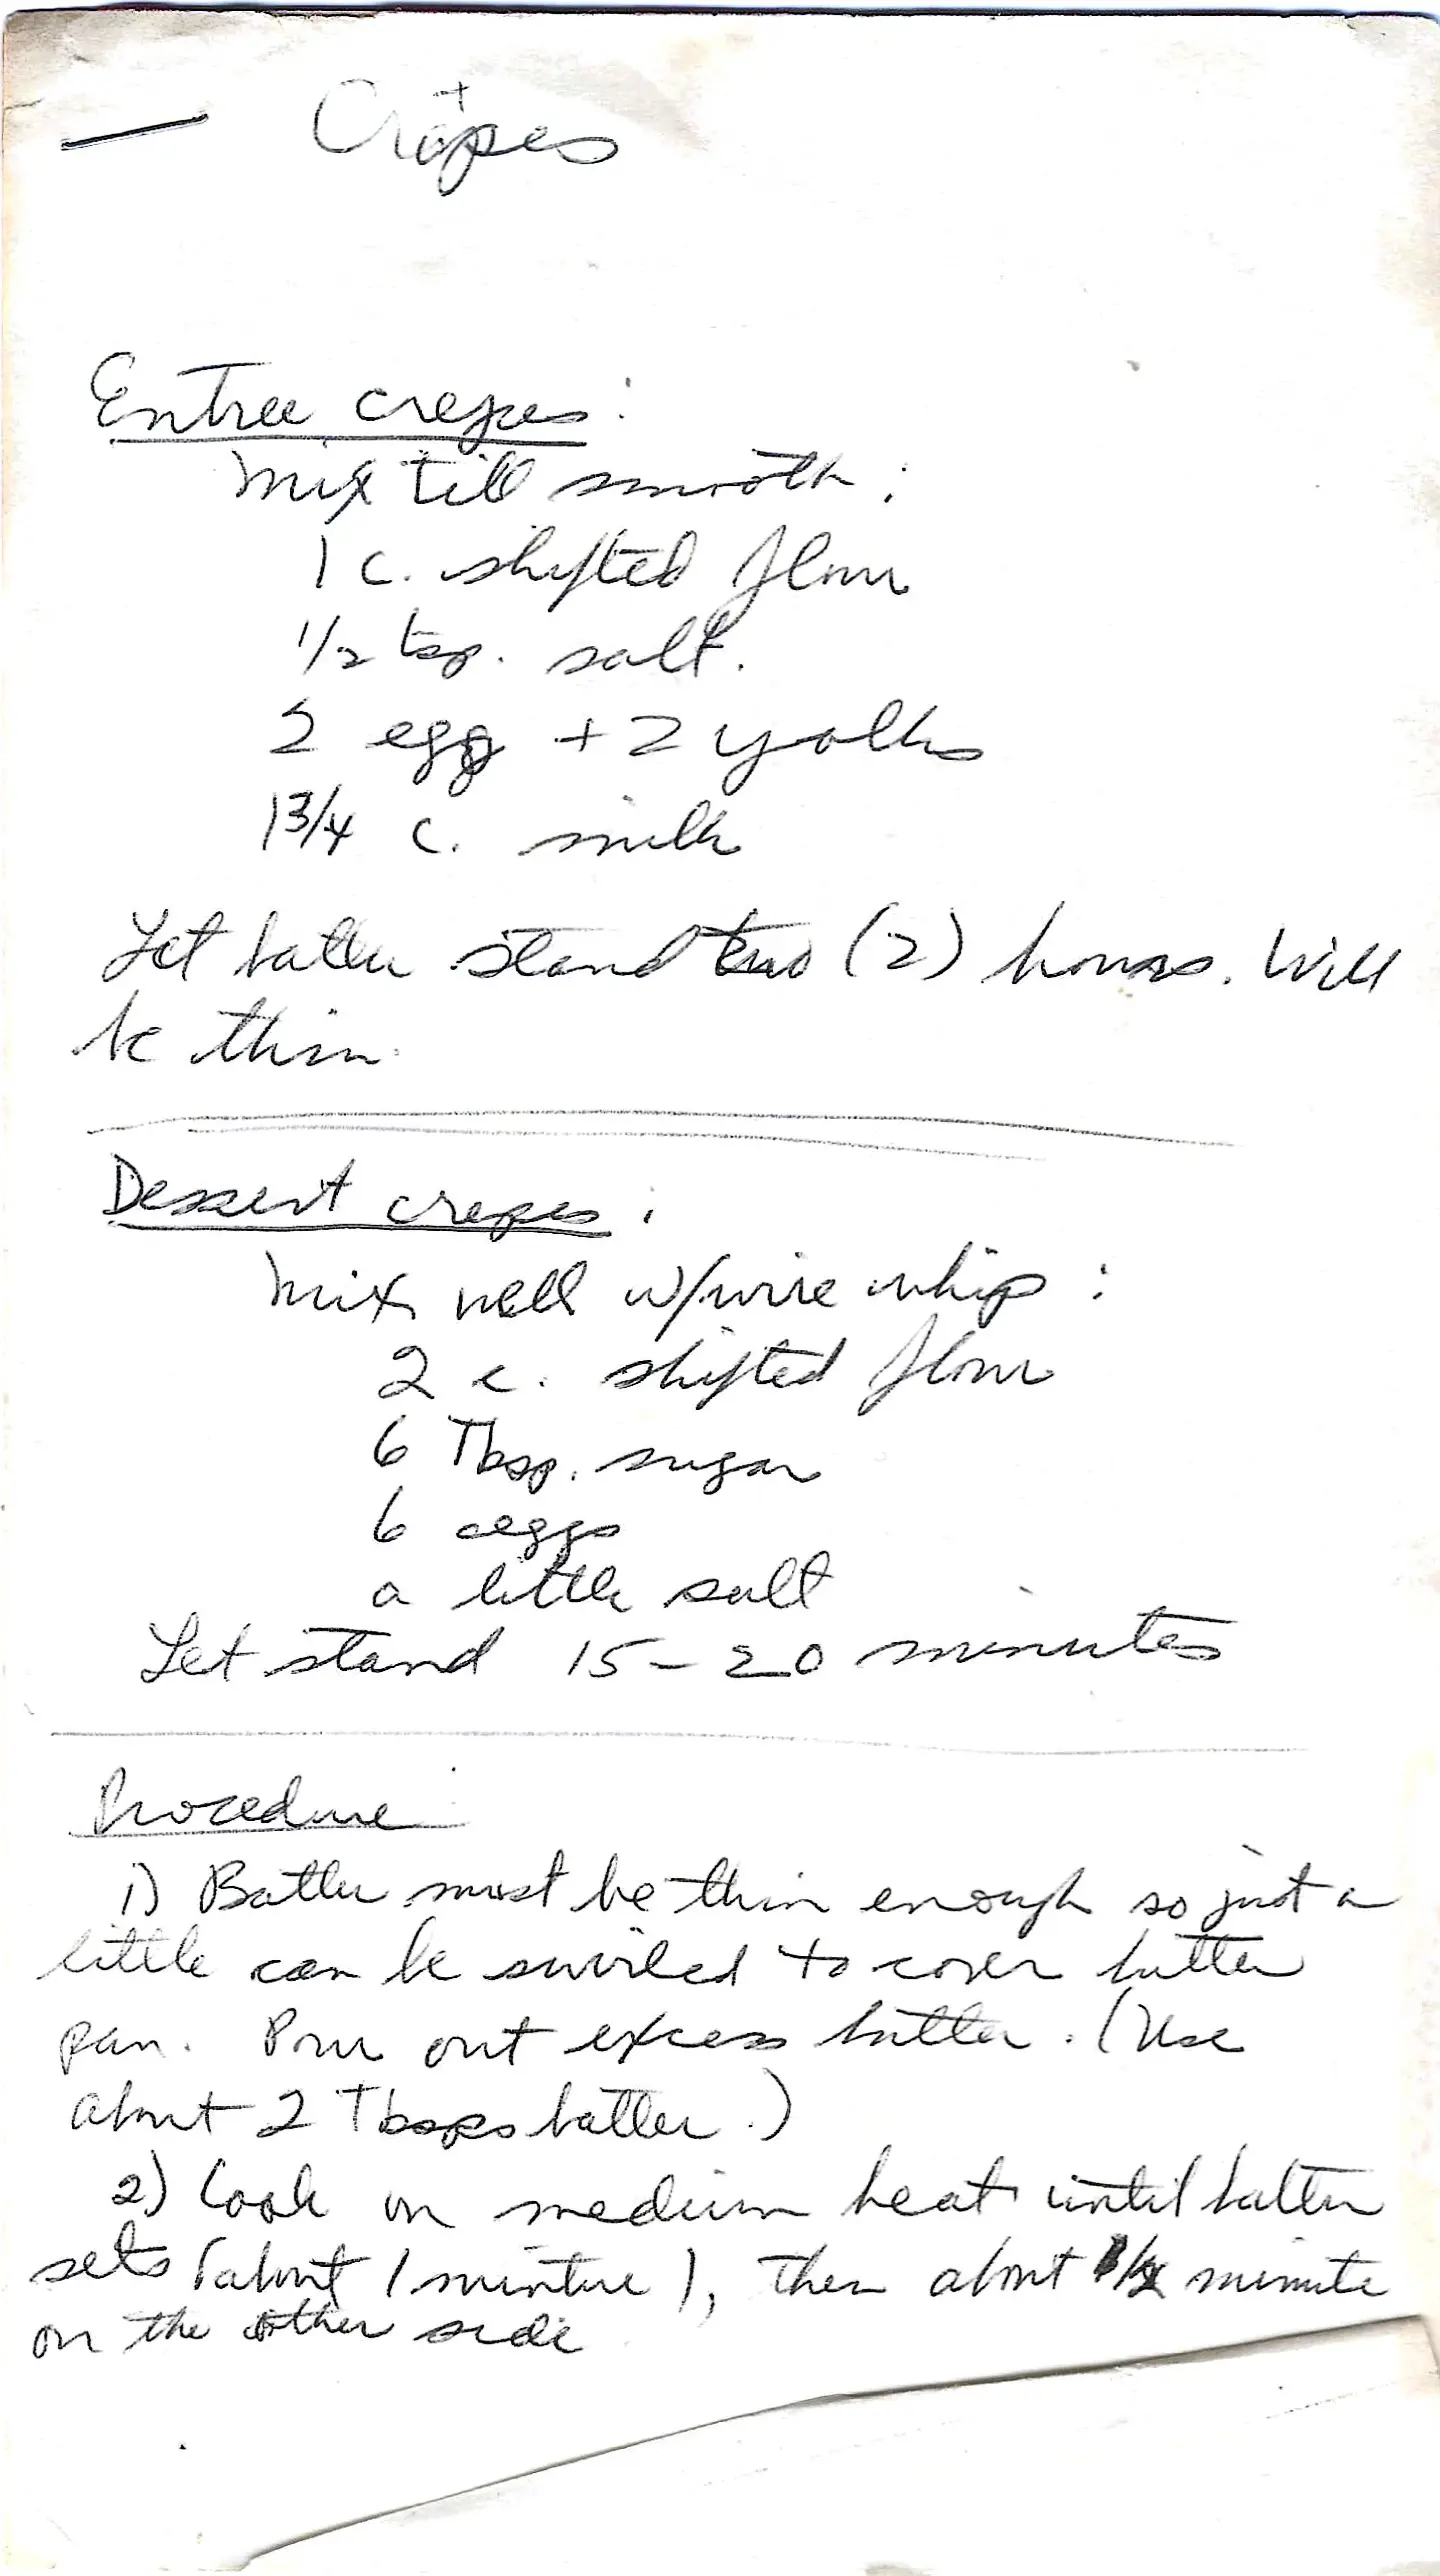 — Crêpes
Entree crepes:
Mix till smooth:
1 c. shifted flour
1/2 tsp. salt.
2 egg + 2 yolks
1 3/4 c. milk
Let batter stand two (2) hours. Will
be thin.
Dessert crepes:
Mix well w/wire whip:
2 c. shifted flour
6 Tbsp. sugar
6 eggs
a little salt
Let stand 15-20 minutes
Procedure
1) Batter must be thin enough so just a
little can be swirled to cover butter
pan. Pour out excess butter. (Use
about 2 Tbsps batter.)
2) Cook on medium heat until batter
sets (about 1 mintue), then about minute
on the other side